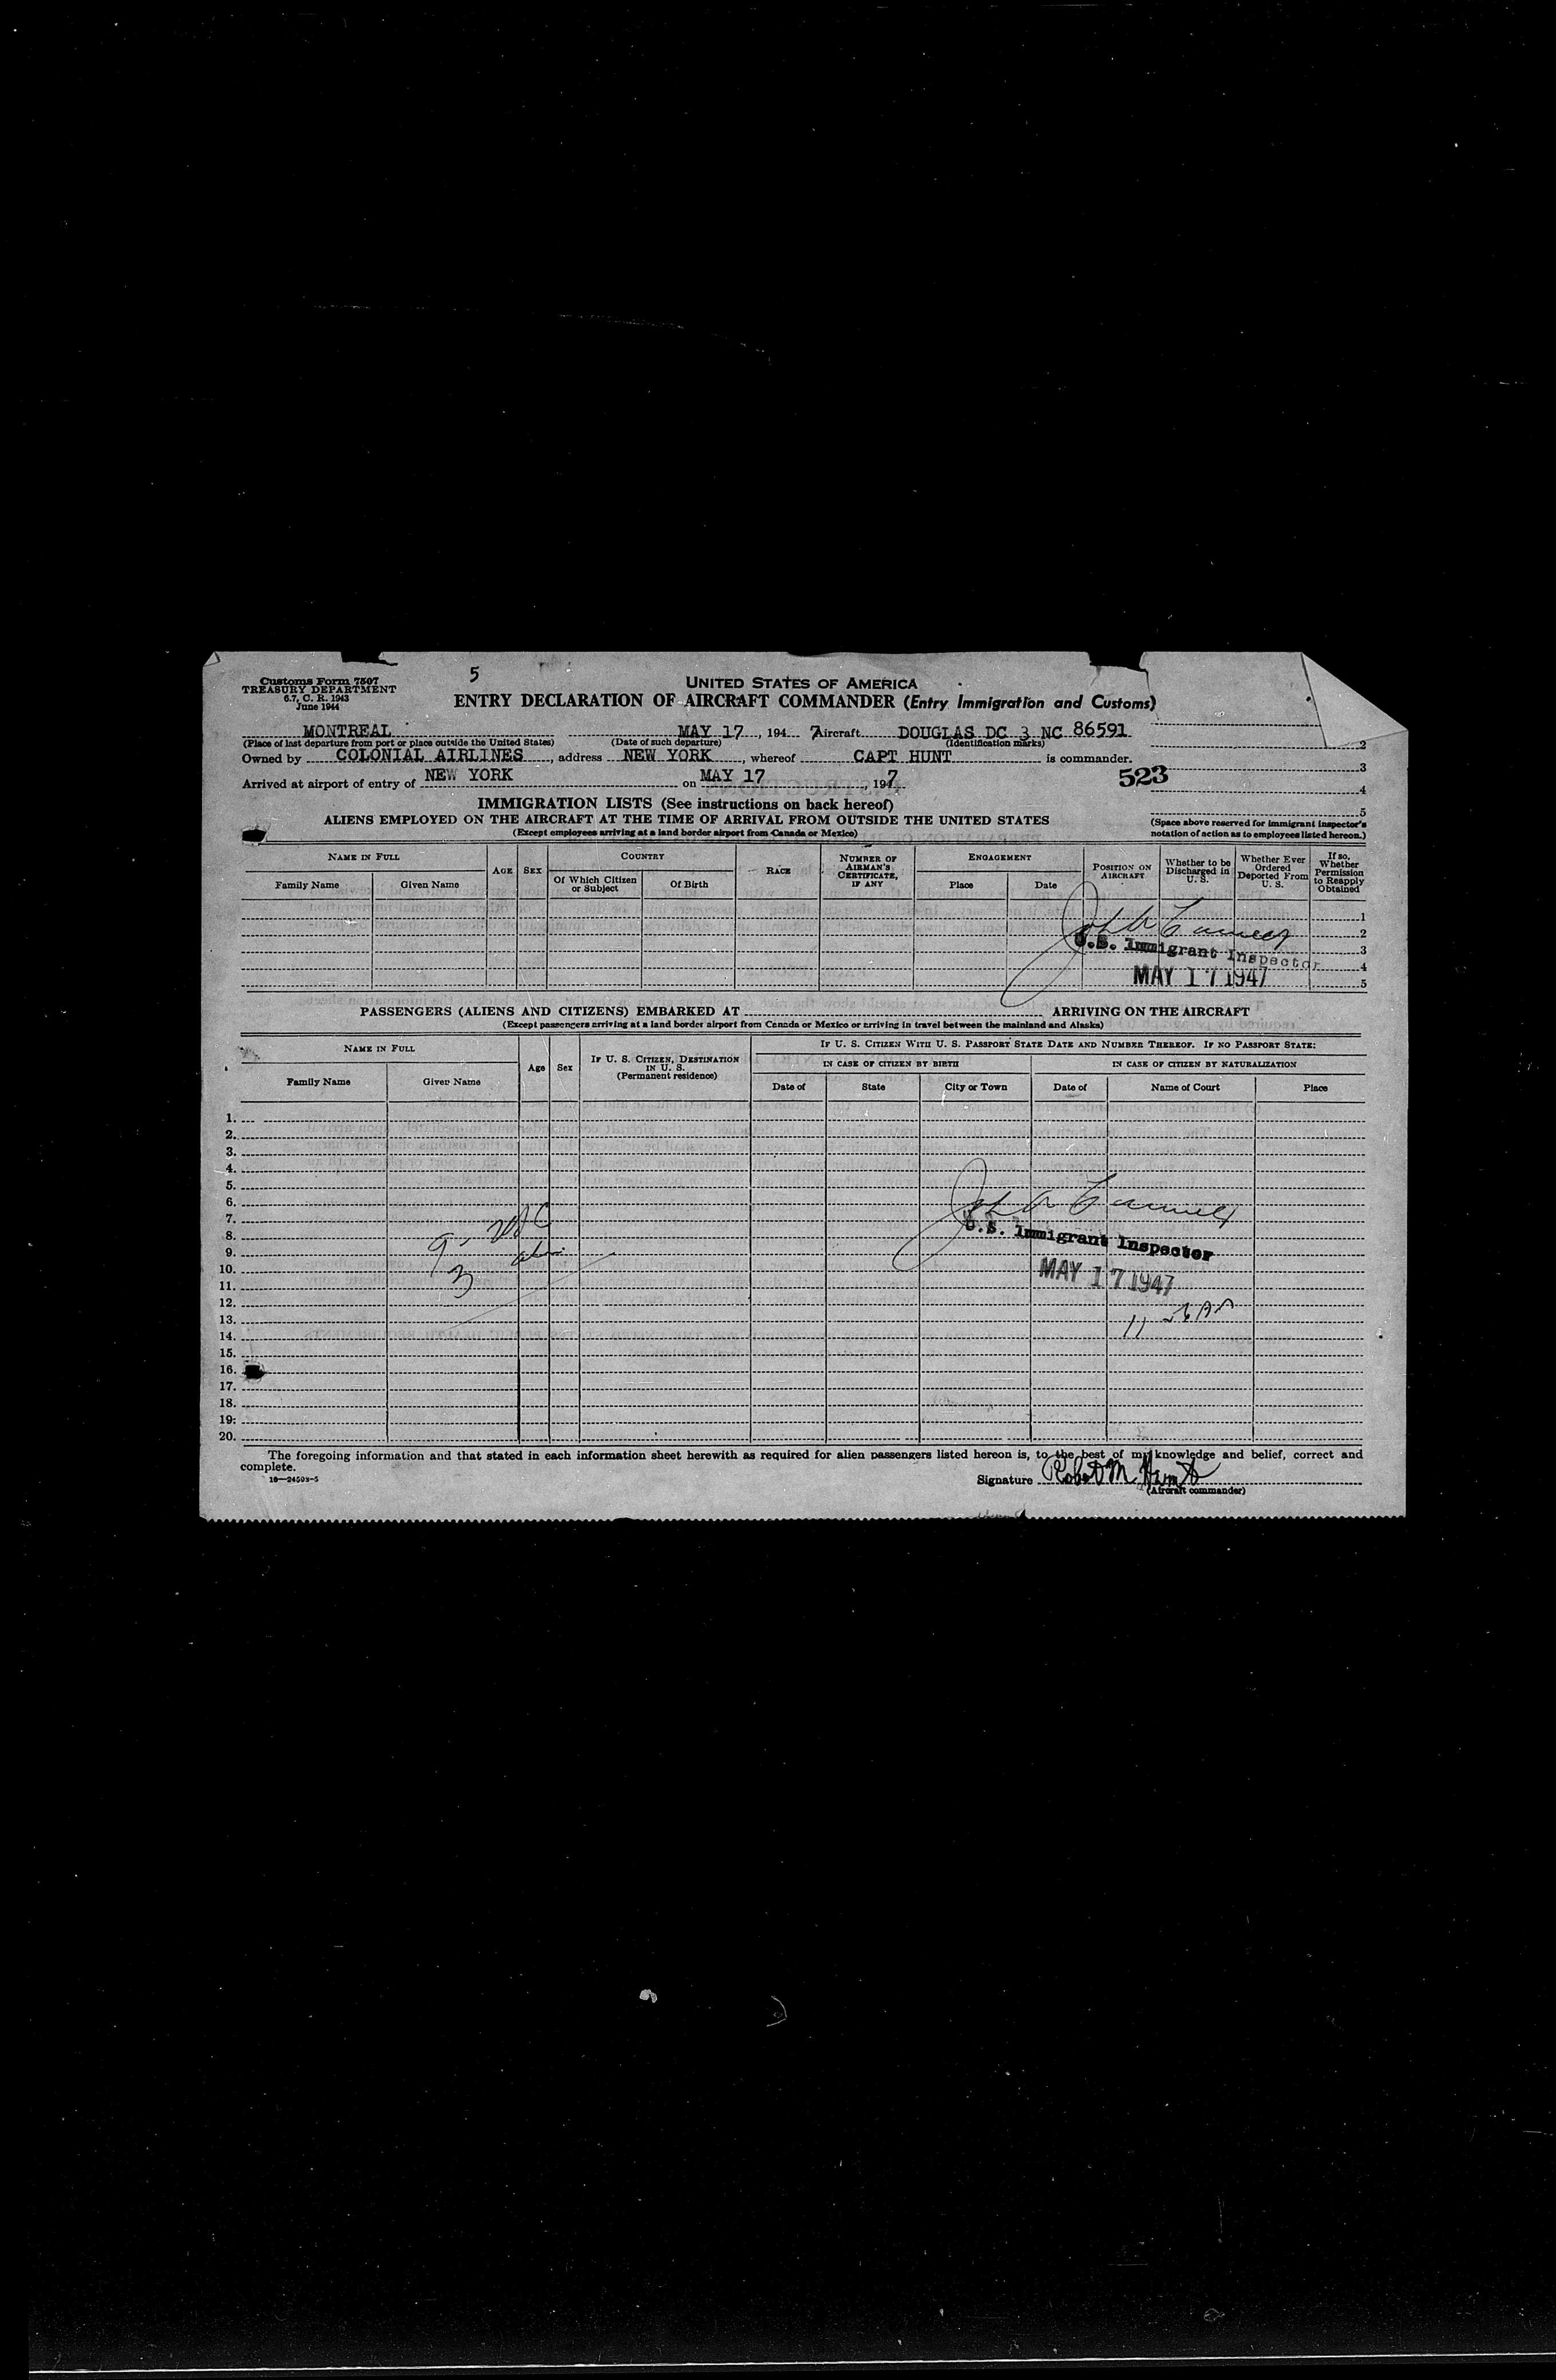 Customs Form 7507
TREASURY DEPARTMENT
6.7, C. R. 1943
June 1944
5
UNITED STATES OF AMERICA
ENTRY DECLARATION OF AIRCRAFT COMMANDER (Entry Immigration and Customs)
MONTREAL MAY 17, 194 7 Aircraft DOUGLAS DC 3 NC 86591
(Place of last departure from port or place outside the United States) (Date of such departure) (Identification marks)
2
Owned by COLONIAL AIRLINES, address NEW YORK, whereof CAPT HUNT is commander.
3
Arrived at airport of entry of NEW YORK on MAY 17, 194 7
523
4
IMMIGRATION LISTS (See instructions on back hereof)
5
ALIENS EMPLOYED ON THE AIRCRAFT AT THE TIME OF ARRIVAL FROM OUTSIDE THE UNITED STATES
(Except employees arriving at a land border airport from Canada or Mexico)
(Space above reserved for immigrant inspector's
notation of action as to employees listed hereon.)
NAME IN FULL
Family Name Given Name
AGE SEX
COUNTRY
Of Which Citizen or Subject Of Birth
RACE
NUMBER OF AIRMAN'S CERTIFICATE, IF ANY
ENGAGEMENT
Place Date
POSITION ON AIRCRAFT
Whether to be Discharged in U. S.
Whether Ever Ordered Deported From U. S.
If so, Whether Permission to Reapply Obtained
1
2
3
4
5
U.S. Immigrant Inspector
MAY 17 1947
PASSENGERS (ALIENS AND CITIZENS) EMBARKED AT ARRIVING ON THE AIRCRAFT
(Except passengers arriving at a land border airport from Canada or Mexico or arriving in travel between the mainland and Alaska)
NAME IN FULL
Family Name Given Name
Age Sex
IF U. S. CITIZEN, DESTINATION IN U. S.
(Permanent residence)
IF U. S. CITIZEN WITH U. S. PASSPORT STATE DATE AND NUMBER THEREOF. IF NO PASSPORT STATE:
IN CASE OF CITIZEN BY BIRTH IN CASE OF CITIZEN BY NATURALIZATION
Date of State City or Town Date of Name of Court Place
1.
2.
3.
4.
5.
6.
7.
8.
9.
10.
11.
12.
13.
14.
15.
16.
17.
18.
19.
20.
9
3
U.S. Immigrant Inspector
MAY 17 1947
11
The foregoing information and that stated in each information sheet herewith as required for alien passengers listed hereon is, to the best of my knowledge and belief, correct and
complete.
16—24503-5
Signature Robert M Hunt
(Aircraft commander)